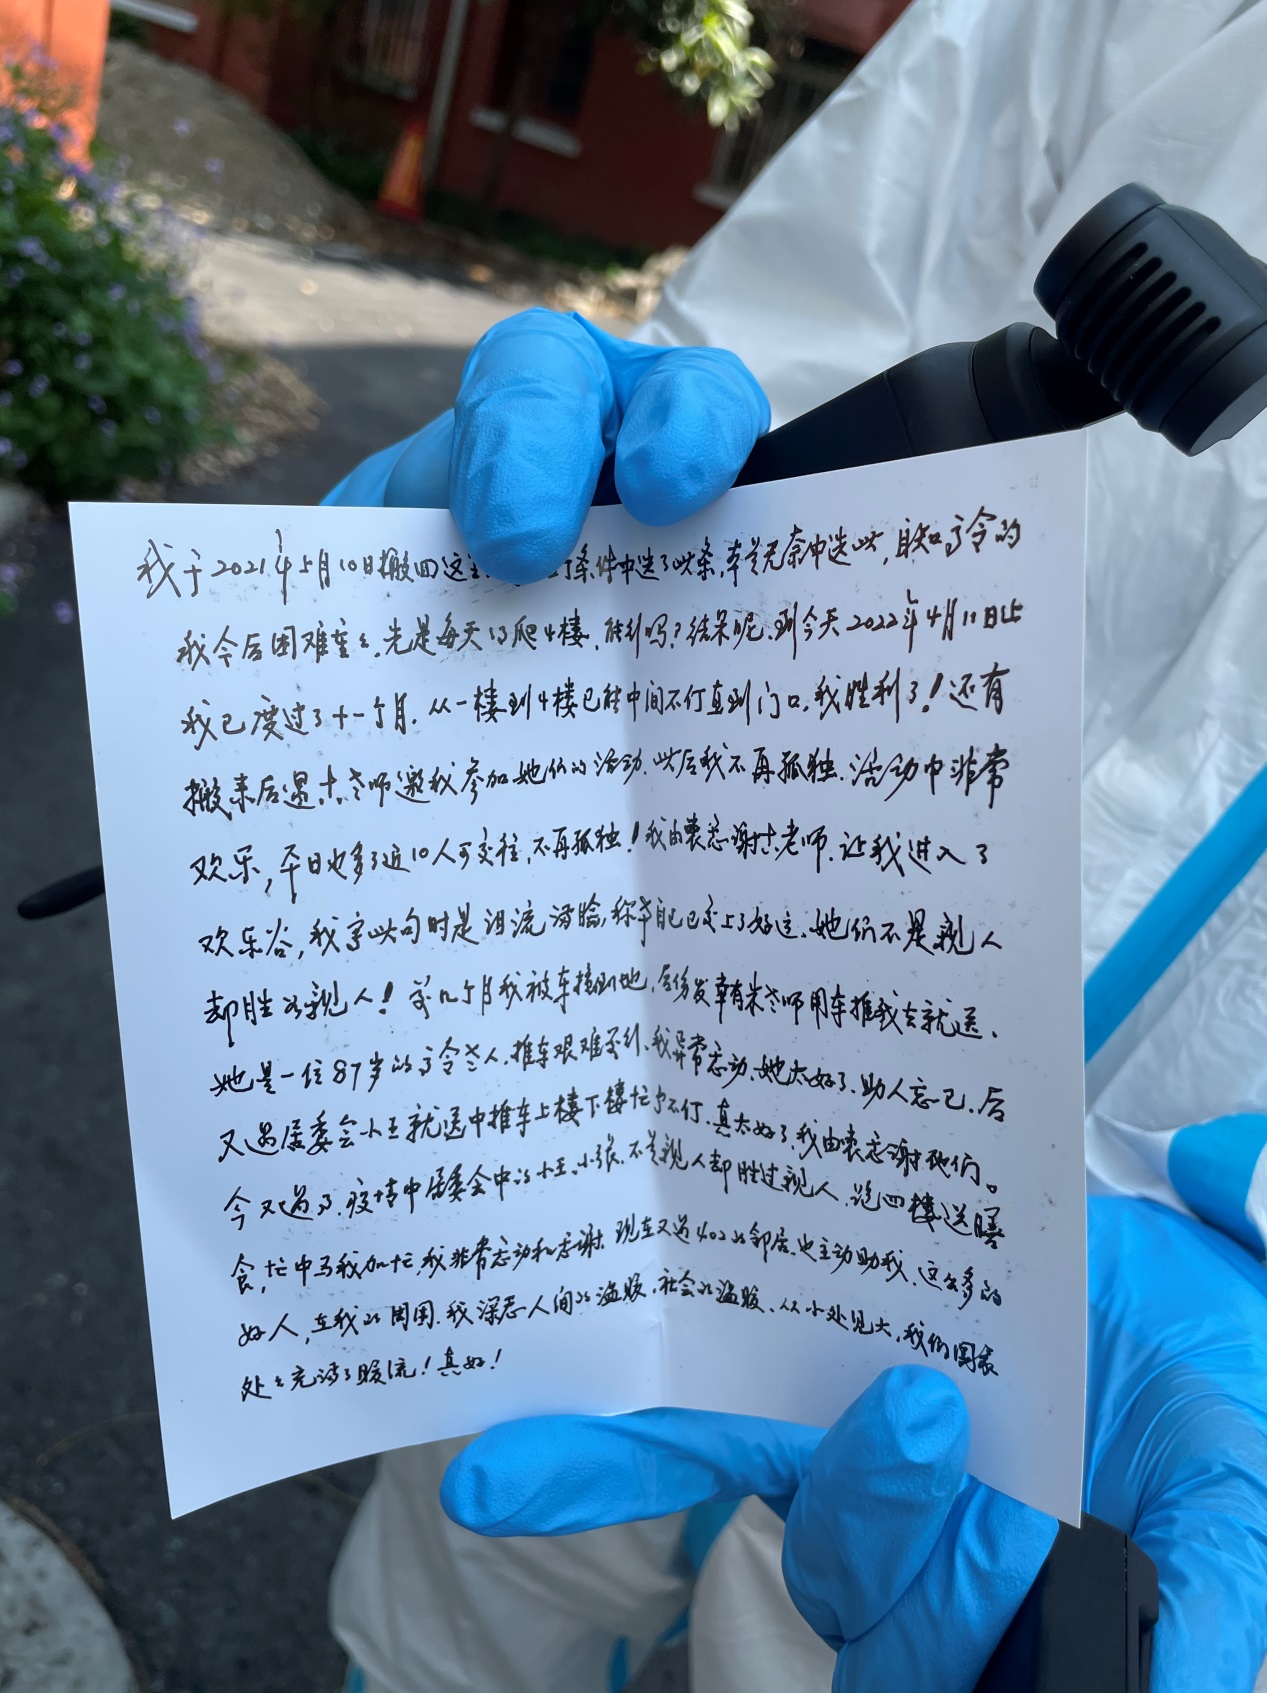 我于2021年5月10日搬四这 条件中选了此条,本是无奈中选此,自知高令的
我今后困难重々,先是每天得爬4楼,能行吗?结果呢,到今天2022年4月11日止
我已度过了十一个月,从一楼到4楼已能中间不停直到门口,我胜利了!还有
搬来后遇 老师邀我参加她们的活动,此后我不再孤独,活动中非常
欢乐,平日也多了近10人可交往,不再孤独!我由衷感谢 老师,让我进入了
欢乐谷,我写此句时是泪流满脸,称自己已交上了好运,她们不是亲人
却胜似亲人!前几个月我被车撞倒地,后伤发幸有朱老师用车推我去就医,
她是一位87岁的高令老人,推车艰难至极,我异常感动,她太好了,助人忘己,后
又遇居委会小王就医中推车上楼下楼忙个不停,真太好了,我由衷感谢他们。
今又遇了,疫情中居委会中的小王、小张,不是亲人却胜过亲人,跑四楼送
食,忙中为我加忙,我非常感动和感谢,现在又遇402的邻居,也主动助我,这么多的
好人,在我的周围,我深感人间的温暖,社会的温暖,从小处见大,我们国家
处々充满了暖流!真好!